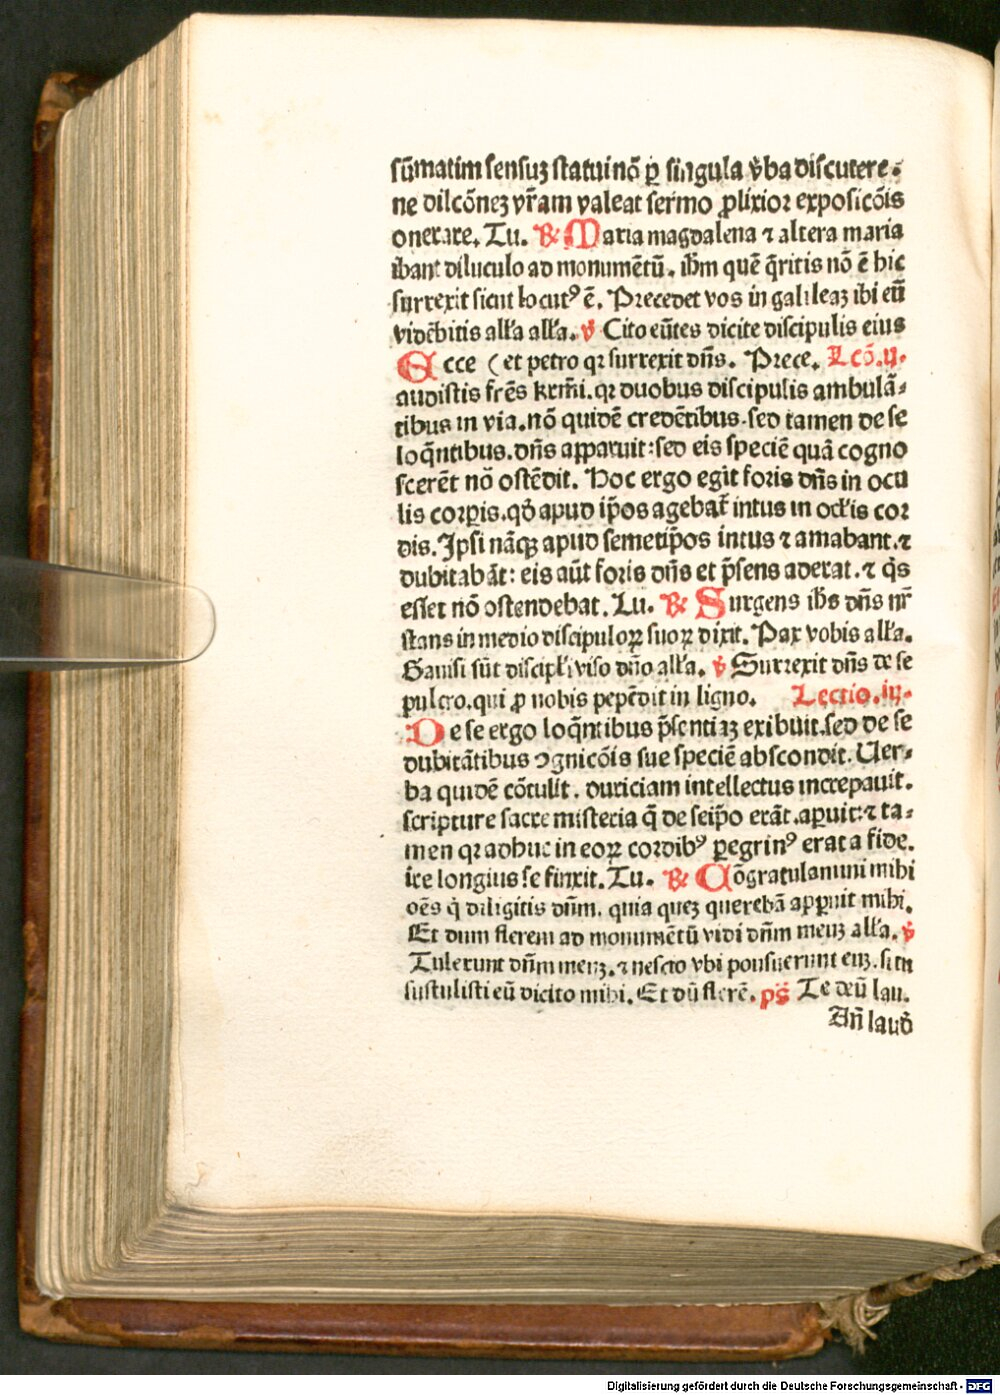 sūmatim sensuꝫ statui nō ꝑ singula v̄ba discutere·
ne dilcōneꝫ vr̄am valeat sermo ꝓlixior exposicōis
onerare. Tu. ℟ Maria magdalena ⁊ altera maria
ibant diluculo ad monumētū. ihm quē q̄ritis nō ē hic
surrexit sicut locutꝰ ē. Precedet vos in galileaꝫ ibi eū
videbitis all'a all'a. ℣ Cito eūtes dicite discipulis eius
Ecce ( et petro qꝛ surrexit dn̄s. Prece. Lcō.ij.
audistis frēs kr̄mi. qꝛ duobus discipulis ambulā-
tibus in via. nō quidē credētibus. sed tamen de se
loq̄ntibus. dn̄s apparuit: sed eis speciē quā cogno
scerēt nō ostēdit. Hoc ergo egit foris dn̄s in ocu
lis corꝑis. qd̄ apud ip̄os agebat̄ intus in ocl'is cor
dis. Ipsi nāqꝫ apud semetip̄os intus ⁊ amabant. ⁊
dubitabāt: eis aūt foris dn̄s et p̄sens aderat. ⁊ q̄s
esset nō ostendebat. Tu. ℟ Surgens ihs dn̄s nr̄
stans in medio discipuloꝝ suoꝝ dixit. Pax vobis all'a.
Gauisi sūt discipl'i viso dn̄o all'a. ℣ Surrexit dn̄s de se
pulcro. qui ꝓ nobis pepēdit in ligno. Lectio.iij.
De se ergo loq̄ntibus p̄sentiaꝫ exibuit. sed de se
dubitātibus ꝯgnicōis sue speciē abscondit. Uer-
ba quidē cōtulit. duriciam intellectus increpauit.
scripture sacre misteria q̄ de seip̄o erāt. aꝑuit: ⁊ ta-
men qꝛ adhuc in eoꝝ cordibꝰ ꝑegrinꝰ erat a fide.
ire longius se finxit. Tu. ℟ Cōgratulamini mihi
oēs q̄ diligitis dn̄m. quia queꝫ querebā apparuit mihi.
Et dum flerem ad monumētū vidi dn̄m meuꝫ all'a. ℣
Tulerunt dn̄m meuꝫ. ⁊ nescio vbi posuerunt euꝫ. si tu
sustulisti eū dicito mihi. Et dū flerē. ps̄ Te deū lau.
An̄ laud̄
Digitalisierung gefördert durch die Deutsche Forschungsgemeinschaft - DFG